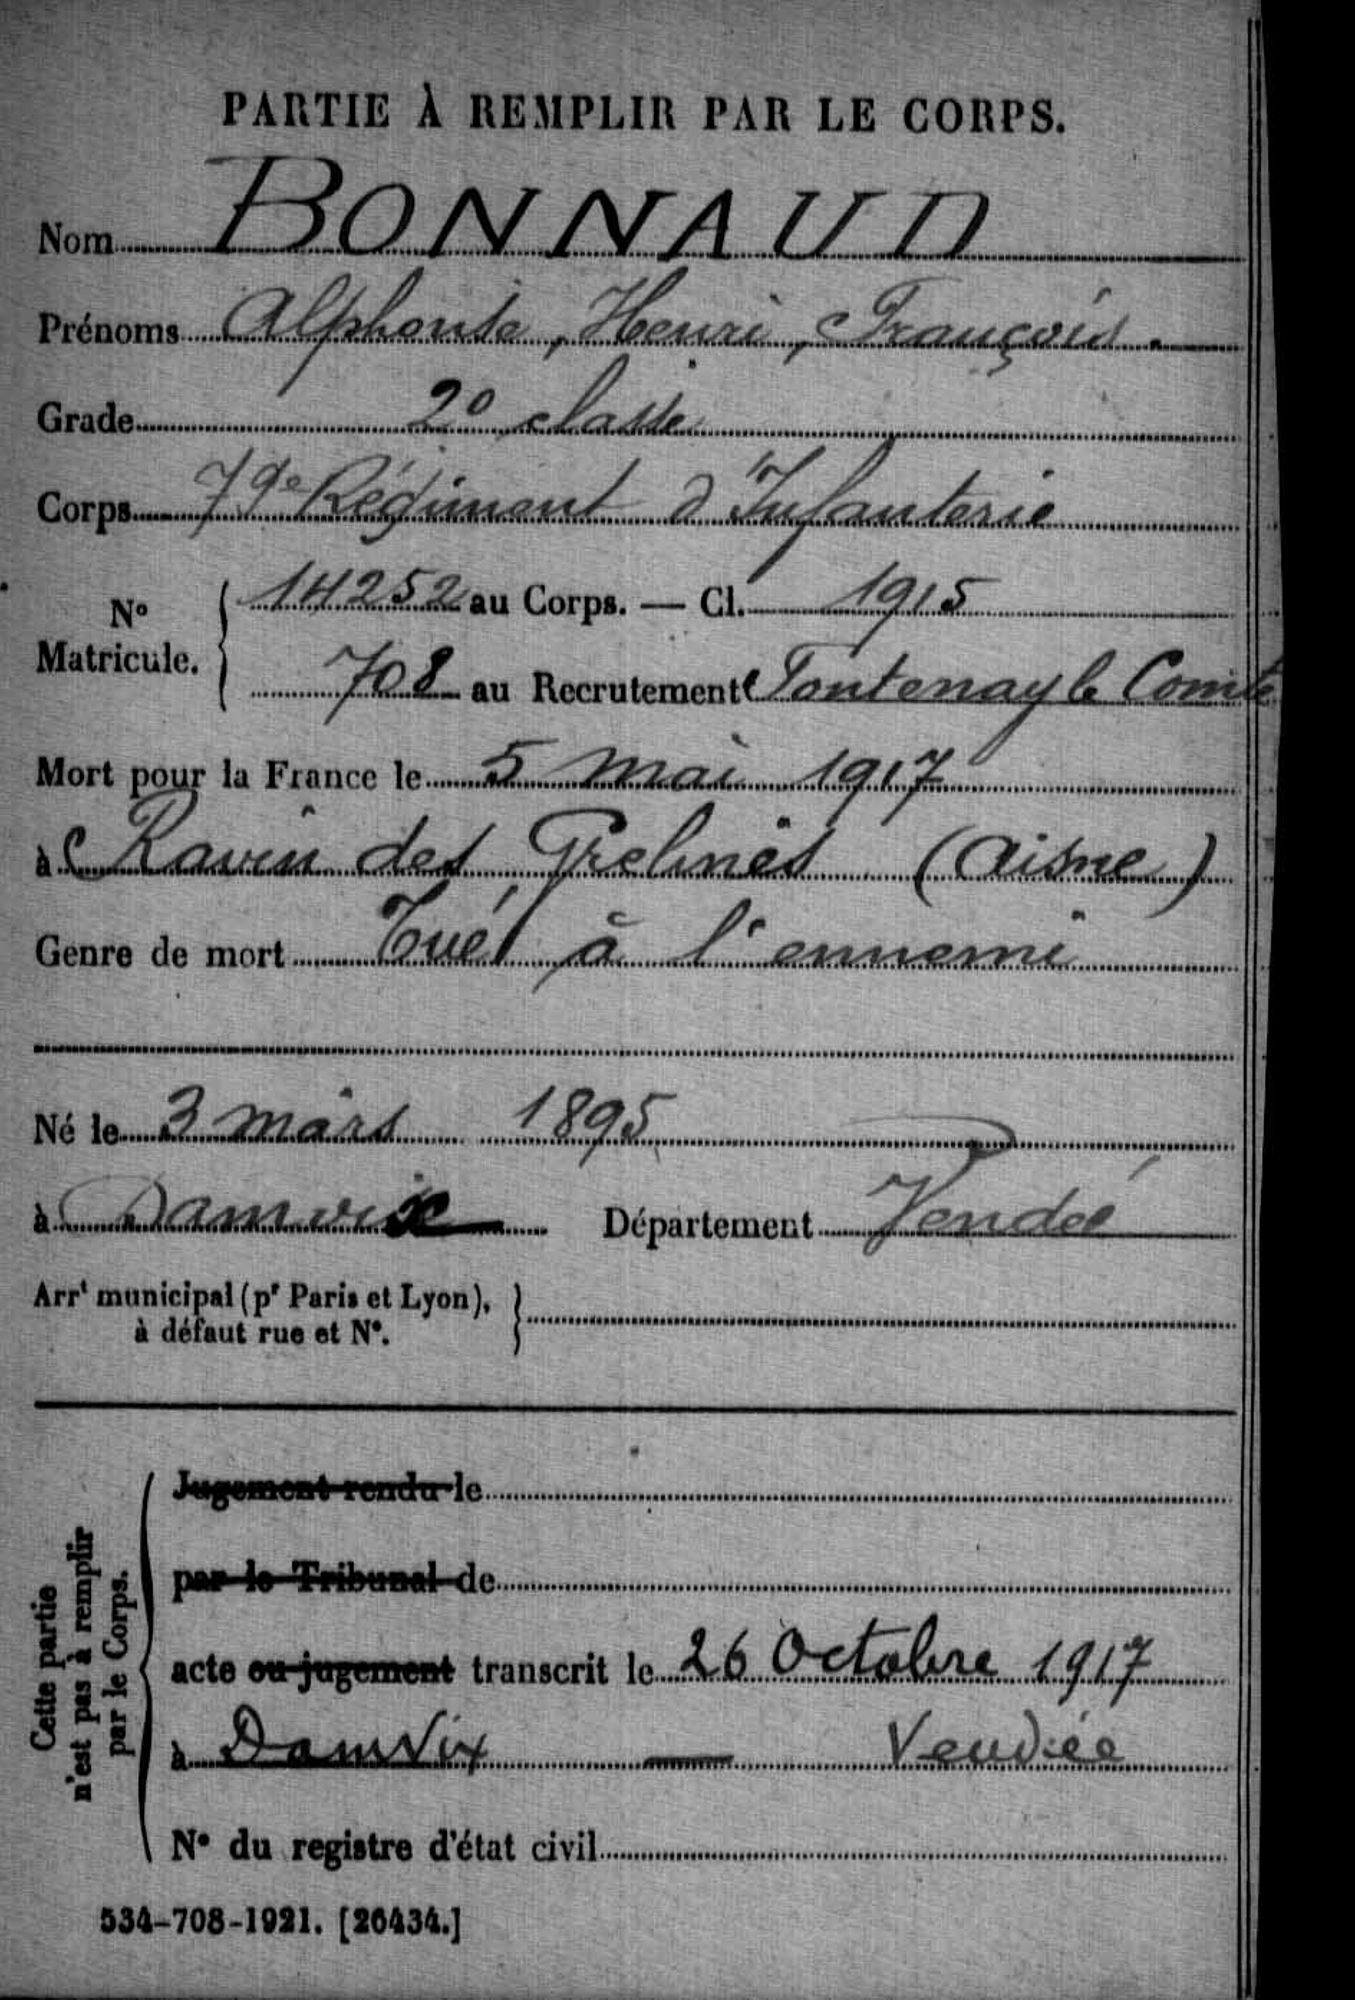 PARTIE À REMPLIR PAR LE CORPS.
Nom BONNAUD
Prénoms Alphonse, Henri, François.
Grade 2e classe
Corps 79e Régiment d'Infanterie
No Matricule. 14252 au Corps. — Cl. 1915
708 au Recrutement Fontenay le Comte
Mort pour la France le 5 mai 1917
à Ravin des Grelines (Aisne)
Genre de mort Tué à l'ennemi
Né le 3 mars 1895
à Damvix Département Vendée
Arrt municipal (pr Paris et Lyon),
à défaut rue et No.
Cette partie
n'est pas à remplir
par le Corps.
Jugement rendu le
par le Tribunal de
acte ou jugement transcrit le 26 Octobre 1917
à Damvix — Vendée
No du registre d'état civil
534-708-1921. [26434.]